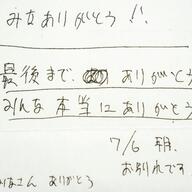 みなありがとう!!
最後まで ありがとう
みんな本当にありがとう
7/6 朝、
お別れです
みなさん ありがとう